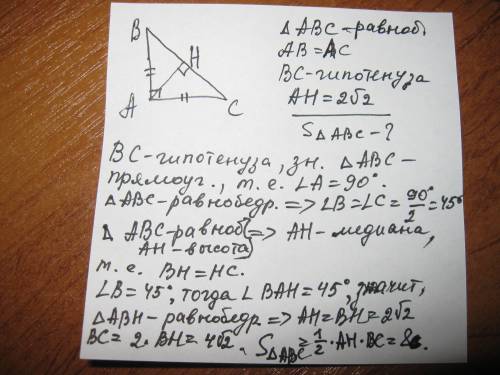 B
H
A
C
△ABC-равноб.
AB=AC
BC-гипотенуза
AH=2√2
S△ABC-?
BC-гипотенуза, зн. △ABC-
прямоуг., т.е. ∠A=90°.
△ABC-равнобедр. => ∠B=∠C=90°/2=45°
△ ABC-равноб
AH-высота) => AH-медиана,
т.е. BH=HC.
∠B=45°, тогда ∠BAH=45°, значит,
△ABH-равнобедр. => AH=BH=2√2
BC=2·BH=4√2. S△ABC=1/2·AH·BC=8.